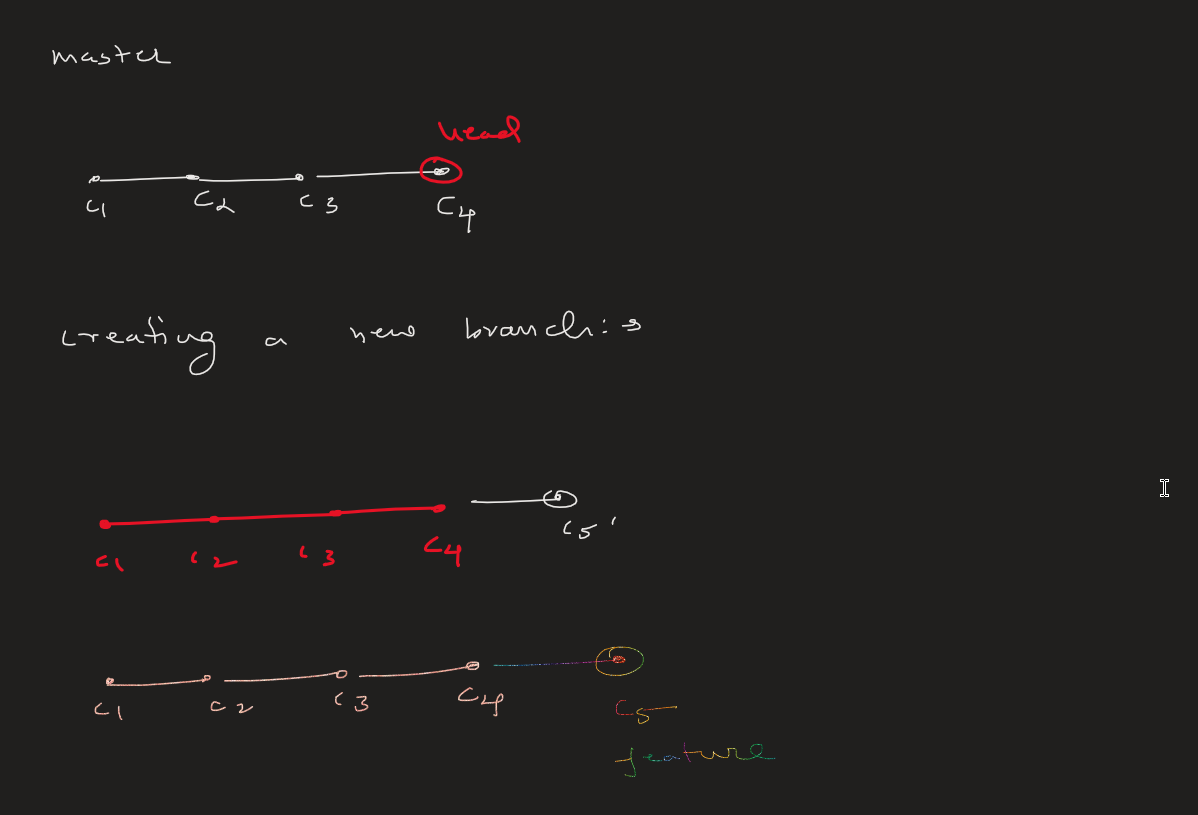 master
head
C1 C2 C3 C4
creating a new branch:→
C5'
C1 C2 C3 C4
C1 C2 C3 C4 C5
feature